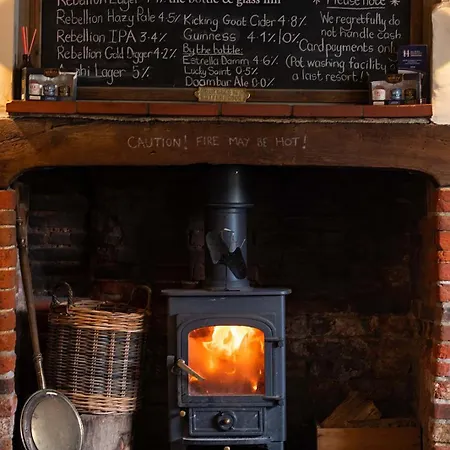 the bottle & glass inn
Rebellion Hazy Pale 4.5%
Rebellion IPA 3.4%
Rebellion Gold Digger 4.2%
Lager 5%
Kicking Goat Cider 4.8%
Guinness 4.1%/0%
By the bottle:
Estrella Damm 4.6%
Lucky Saint 0.5%
0.0%
Please note
We regretfully do
not handle cash
Card payments only
(Pot washing facility
a last resort!)
CAUTION! FIRE MAY BE HOT!